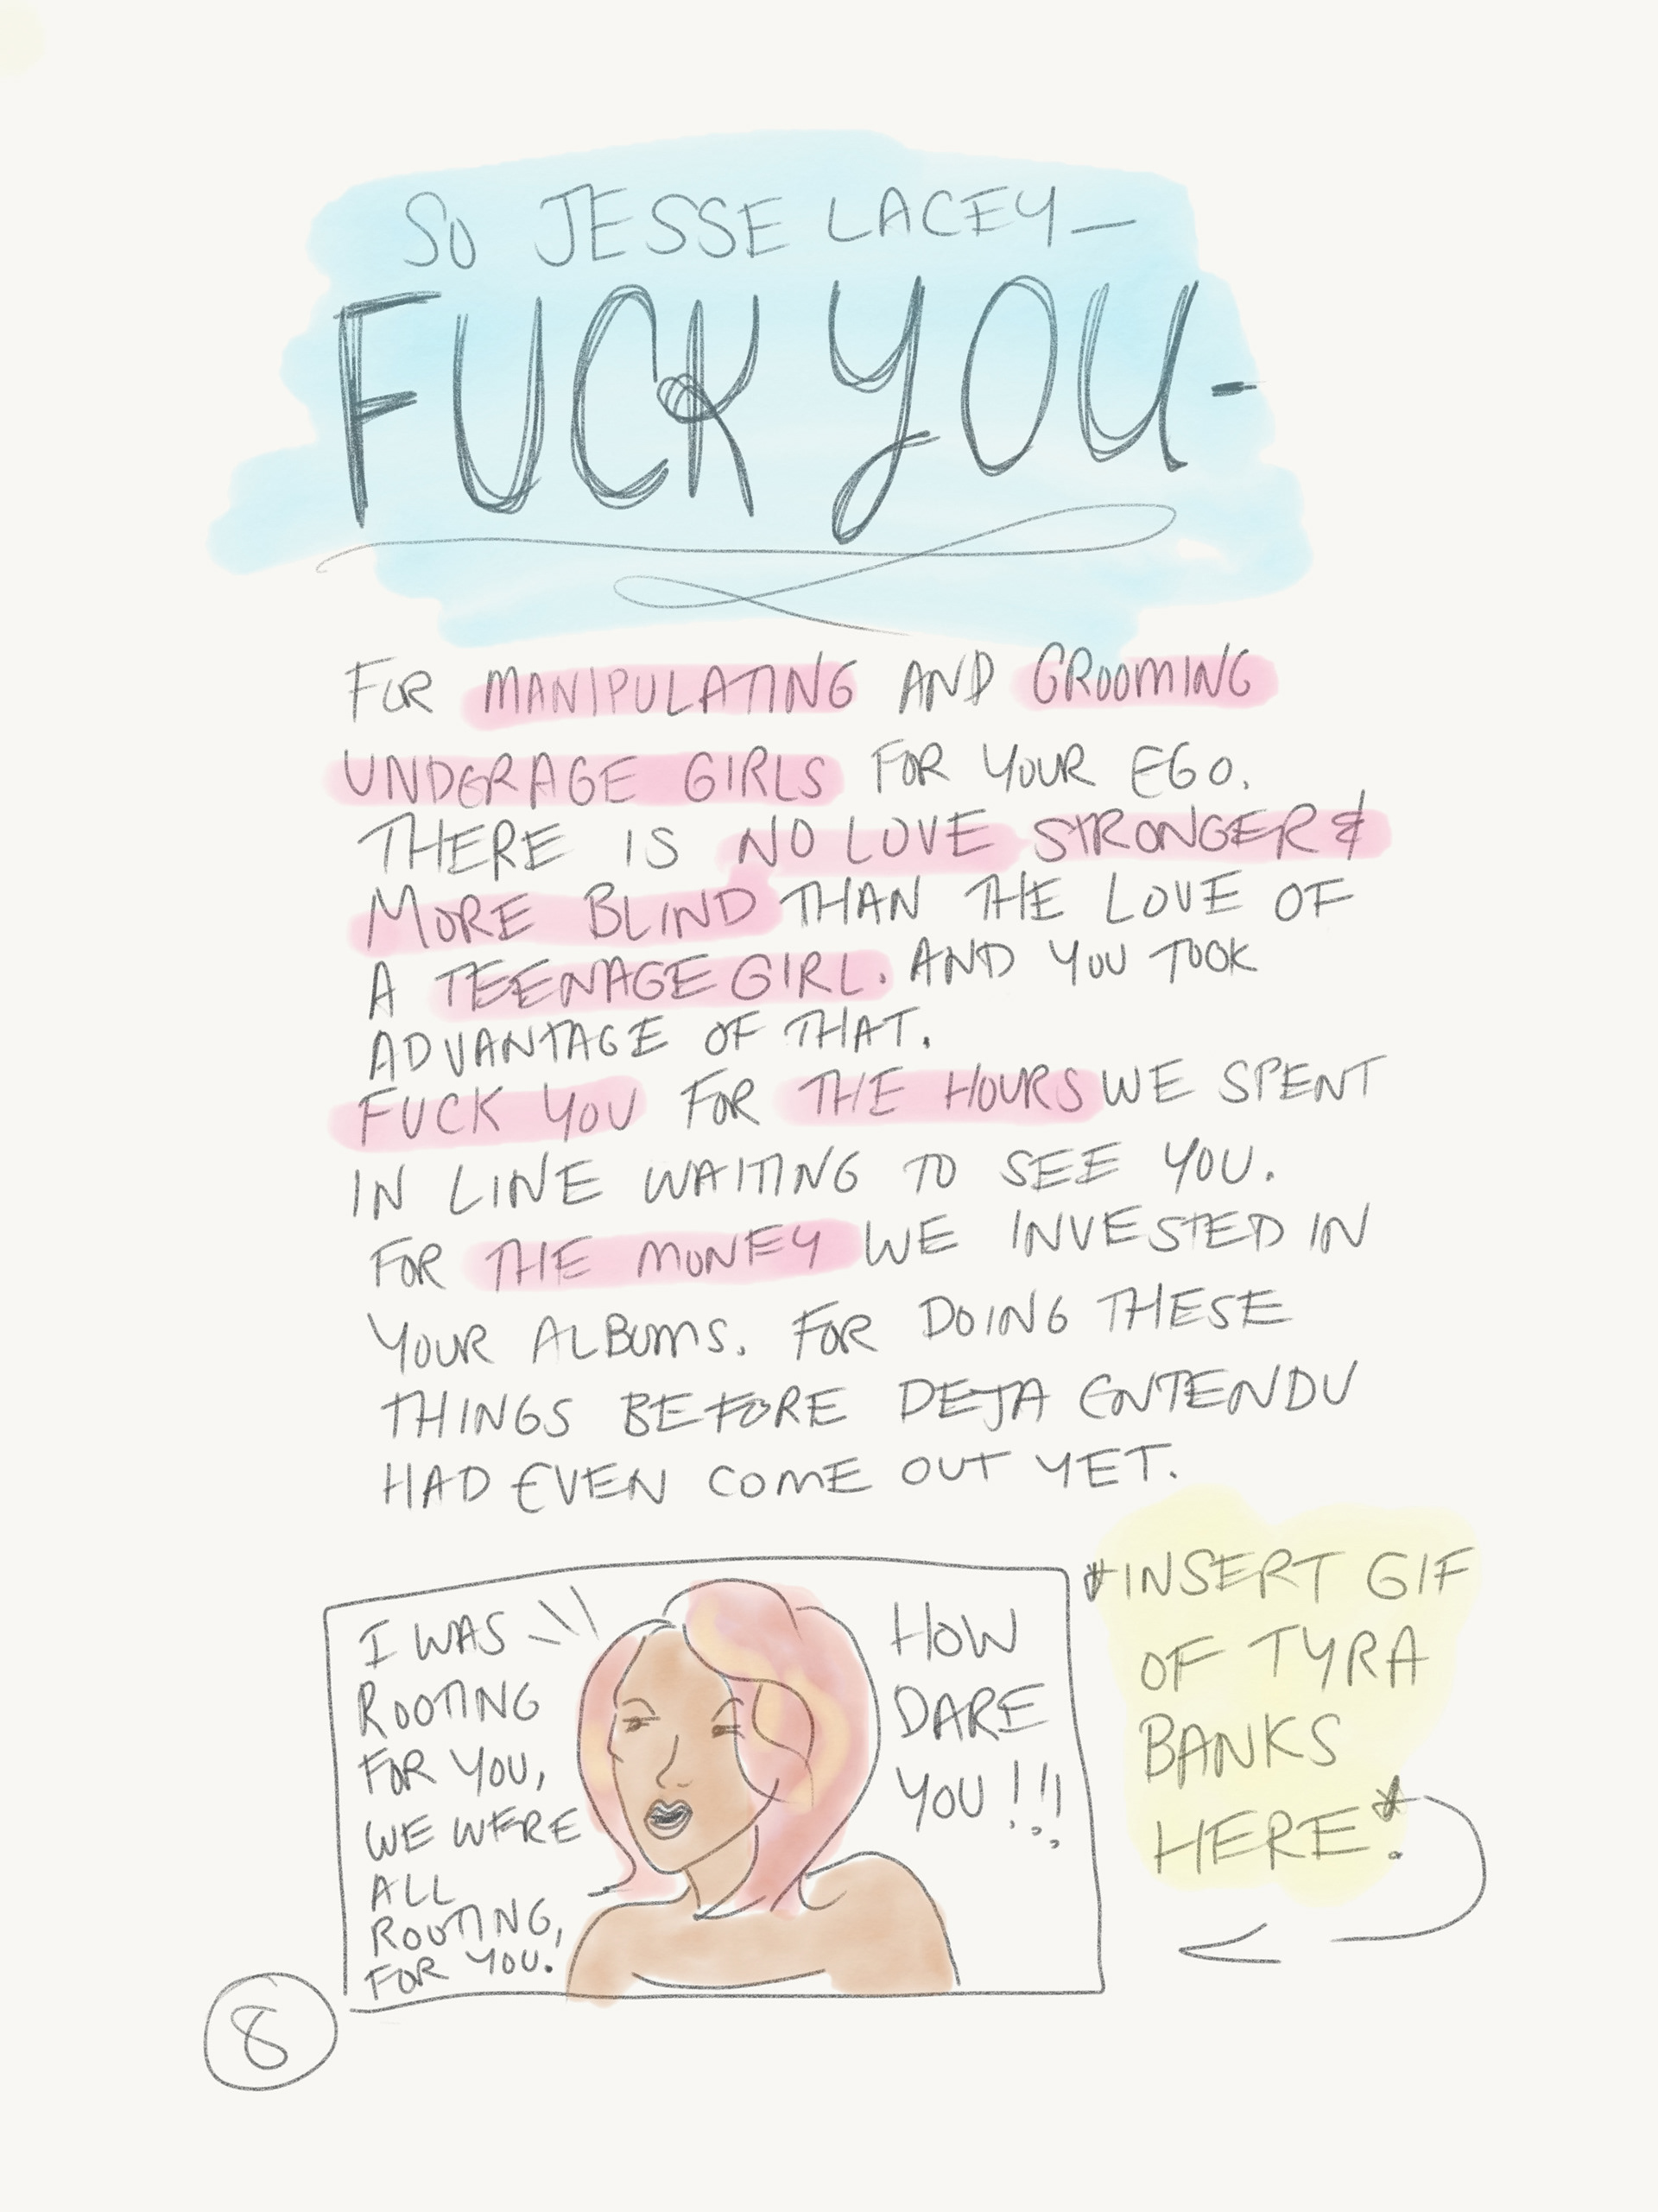 SO JESSE LACEY—
FUCK YOU-
FOR MANIPULATING AND GROOMING
UNDERAGE GIRLS FOR YOUR EGO.
THERE IS NO LOVE STRONGER &
MORE BLIND THAN THE LOVE OF
A TEENAGE GIRL. AND YOU TOOK
ADVANTAGE OF THAT.
FUCK YOU FOR THE HOURS WE SPENT
IN LINE WAITING TO SEE YOU.
FOR THE MONEY WE INVESTED IN
YOUR ALBUMS. FOR DOING THESE
THINGS BEFORE DEJA ENTENDU
HAD EVEN COME OUT YET.
I WAS
ROOTING
FOR YOU,
WE WERE
ALL
ROOTING,
FOR YOU.
HOW
DARE
YOU!!!
*INSERT GIF
OF TYRA
BANKS
HERE*.
8